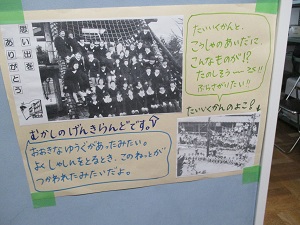 思い出を
ありがとう
たいいくかんと、
こうしゃのあいだに、
こんなものが!?
たのしそう
ぶらさがりたい!!
むかしのげんきらんどです。
おおきなゆうぐがあったみたい。
よくしゃしんをとるとき、このねっとが
つかわれたみたいだよ。
たいいくかんのよこ